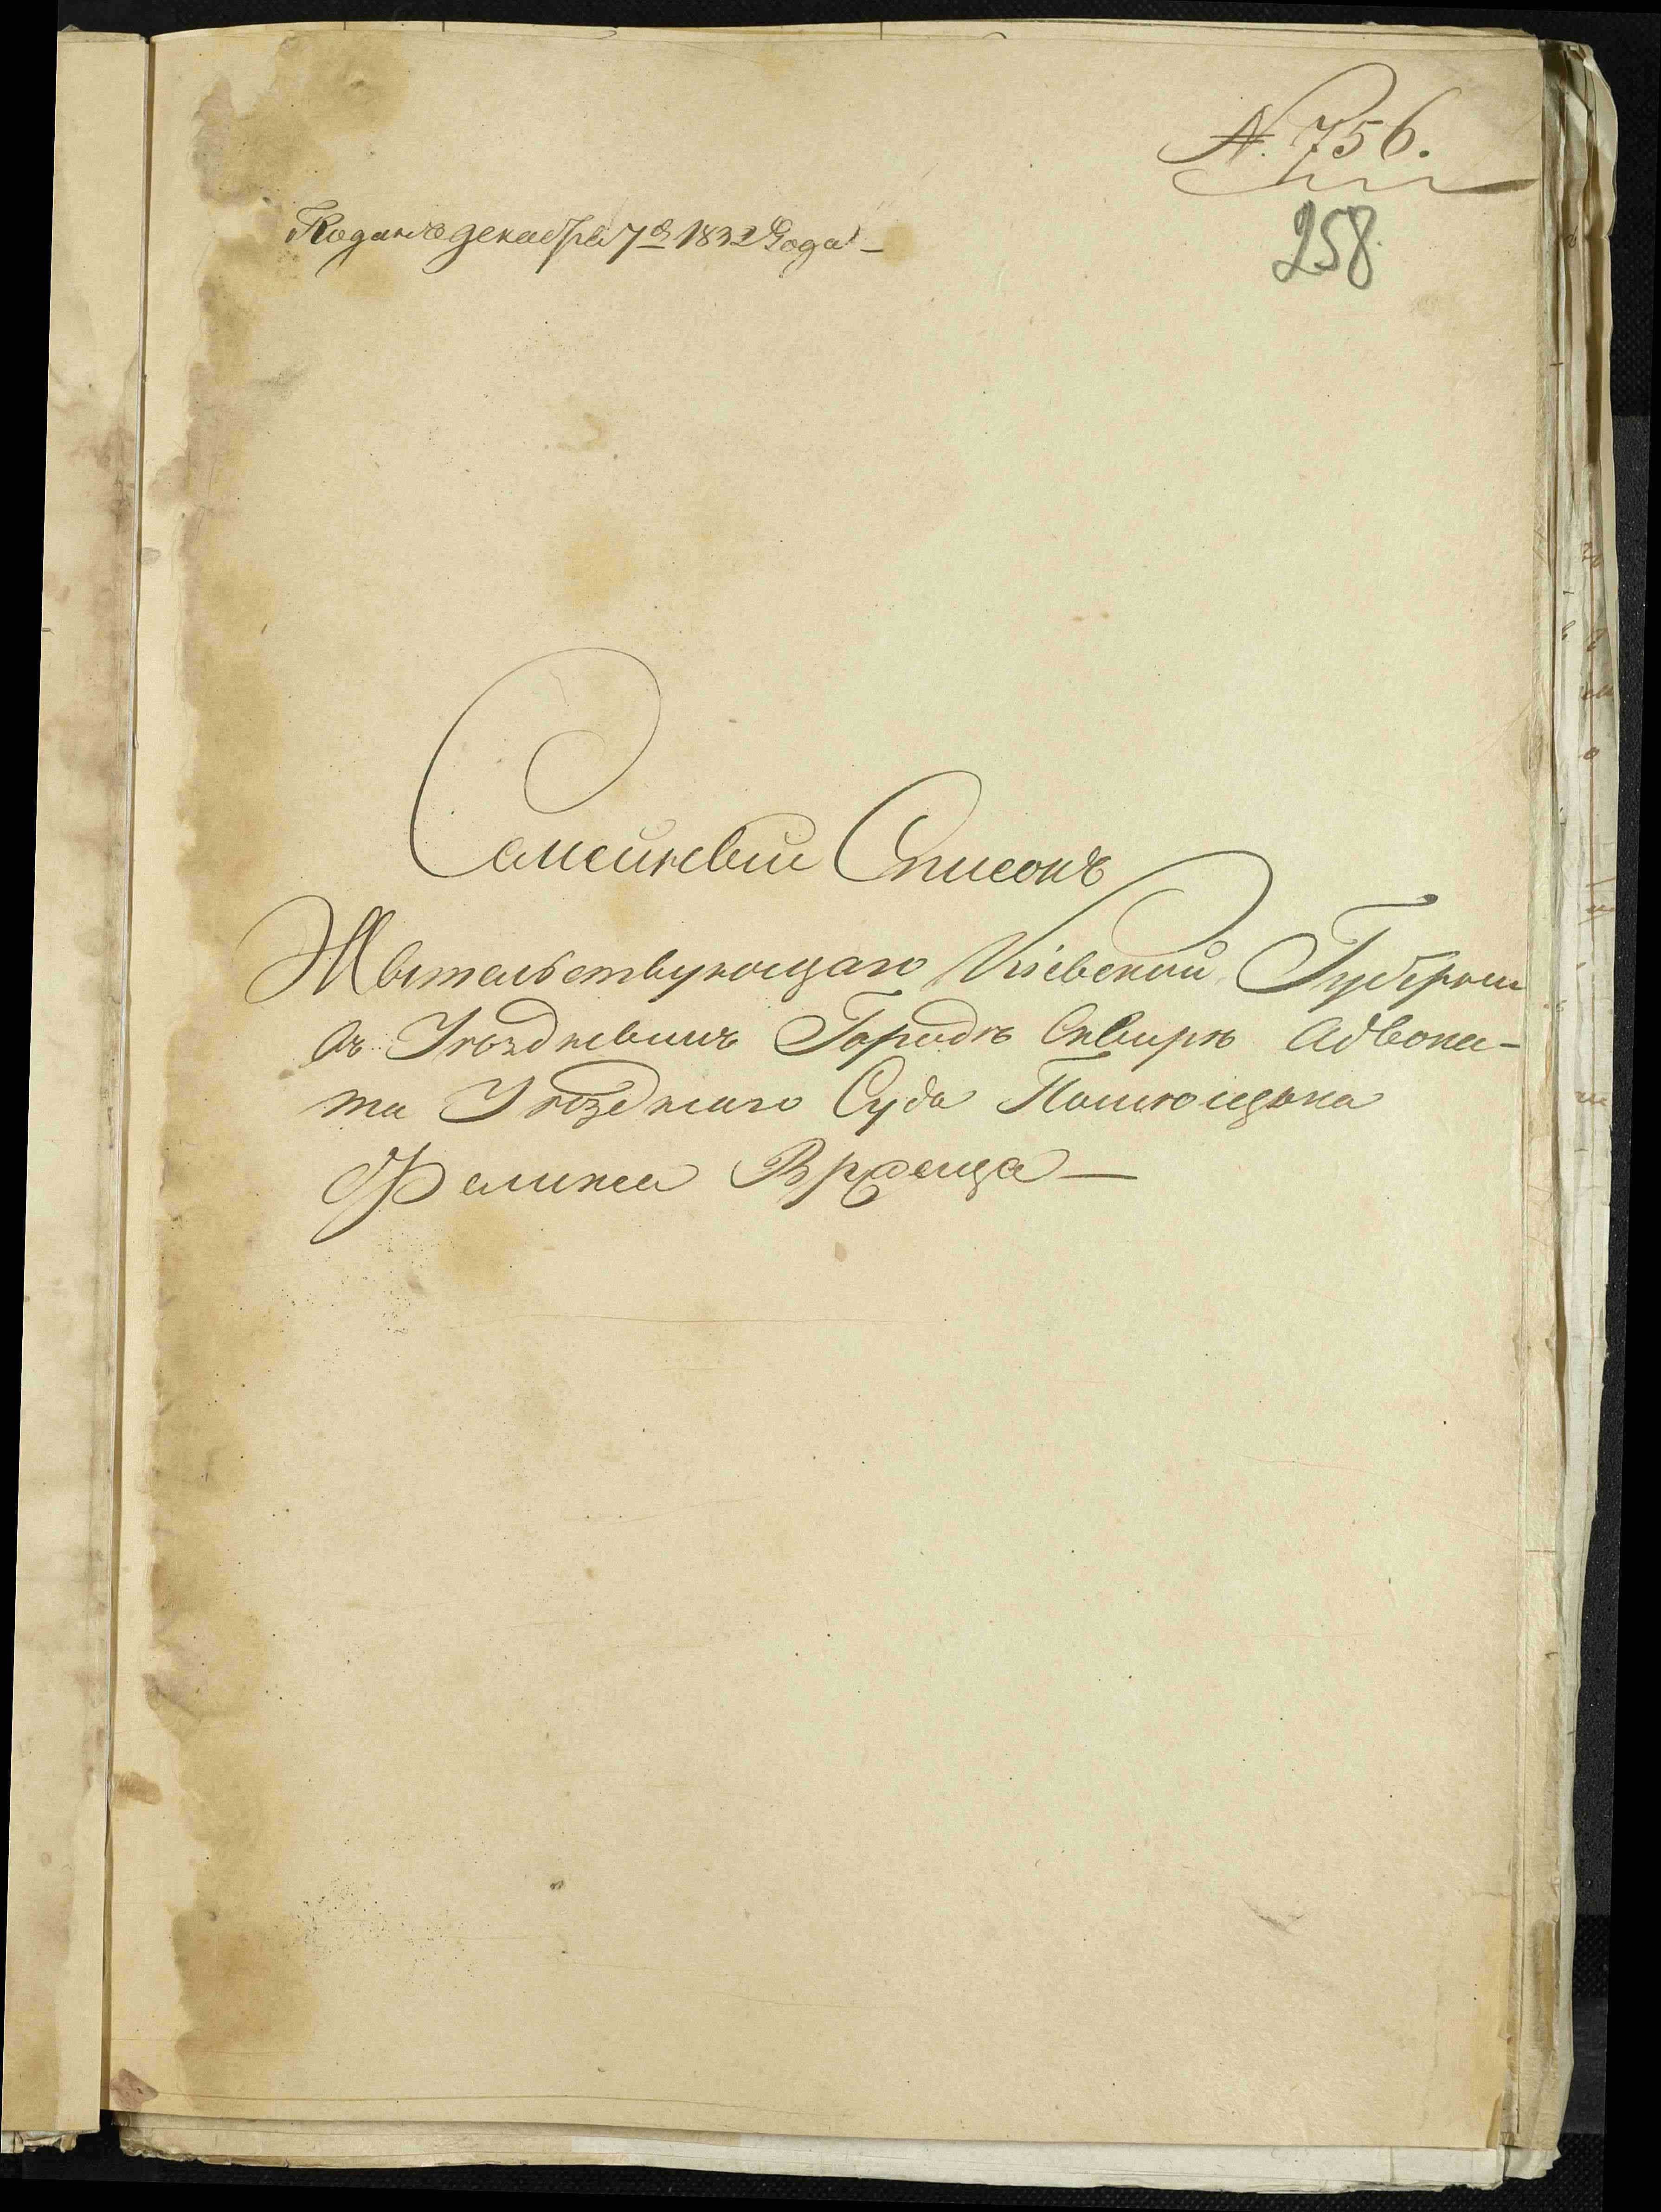 N. 756.
258
Подано декабря 7го 1832 Года —
Семейный Списокъ
Жытельствующаго Кіевской Губерніи
въ Уѣздномъ Городѣ Сквирѣ Адвока-
та Уѣзднаго Суда Помѣщика
Феликса